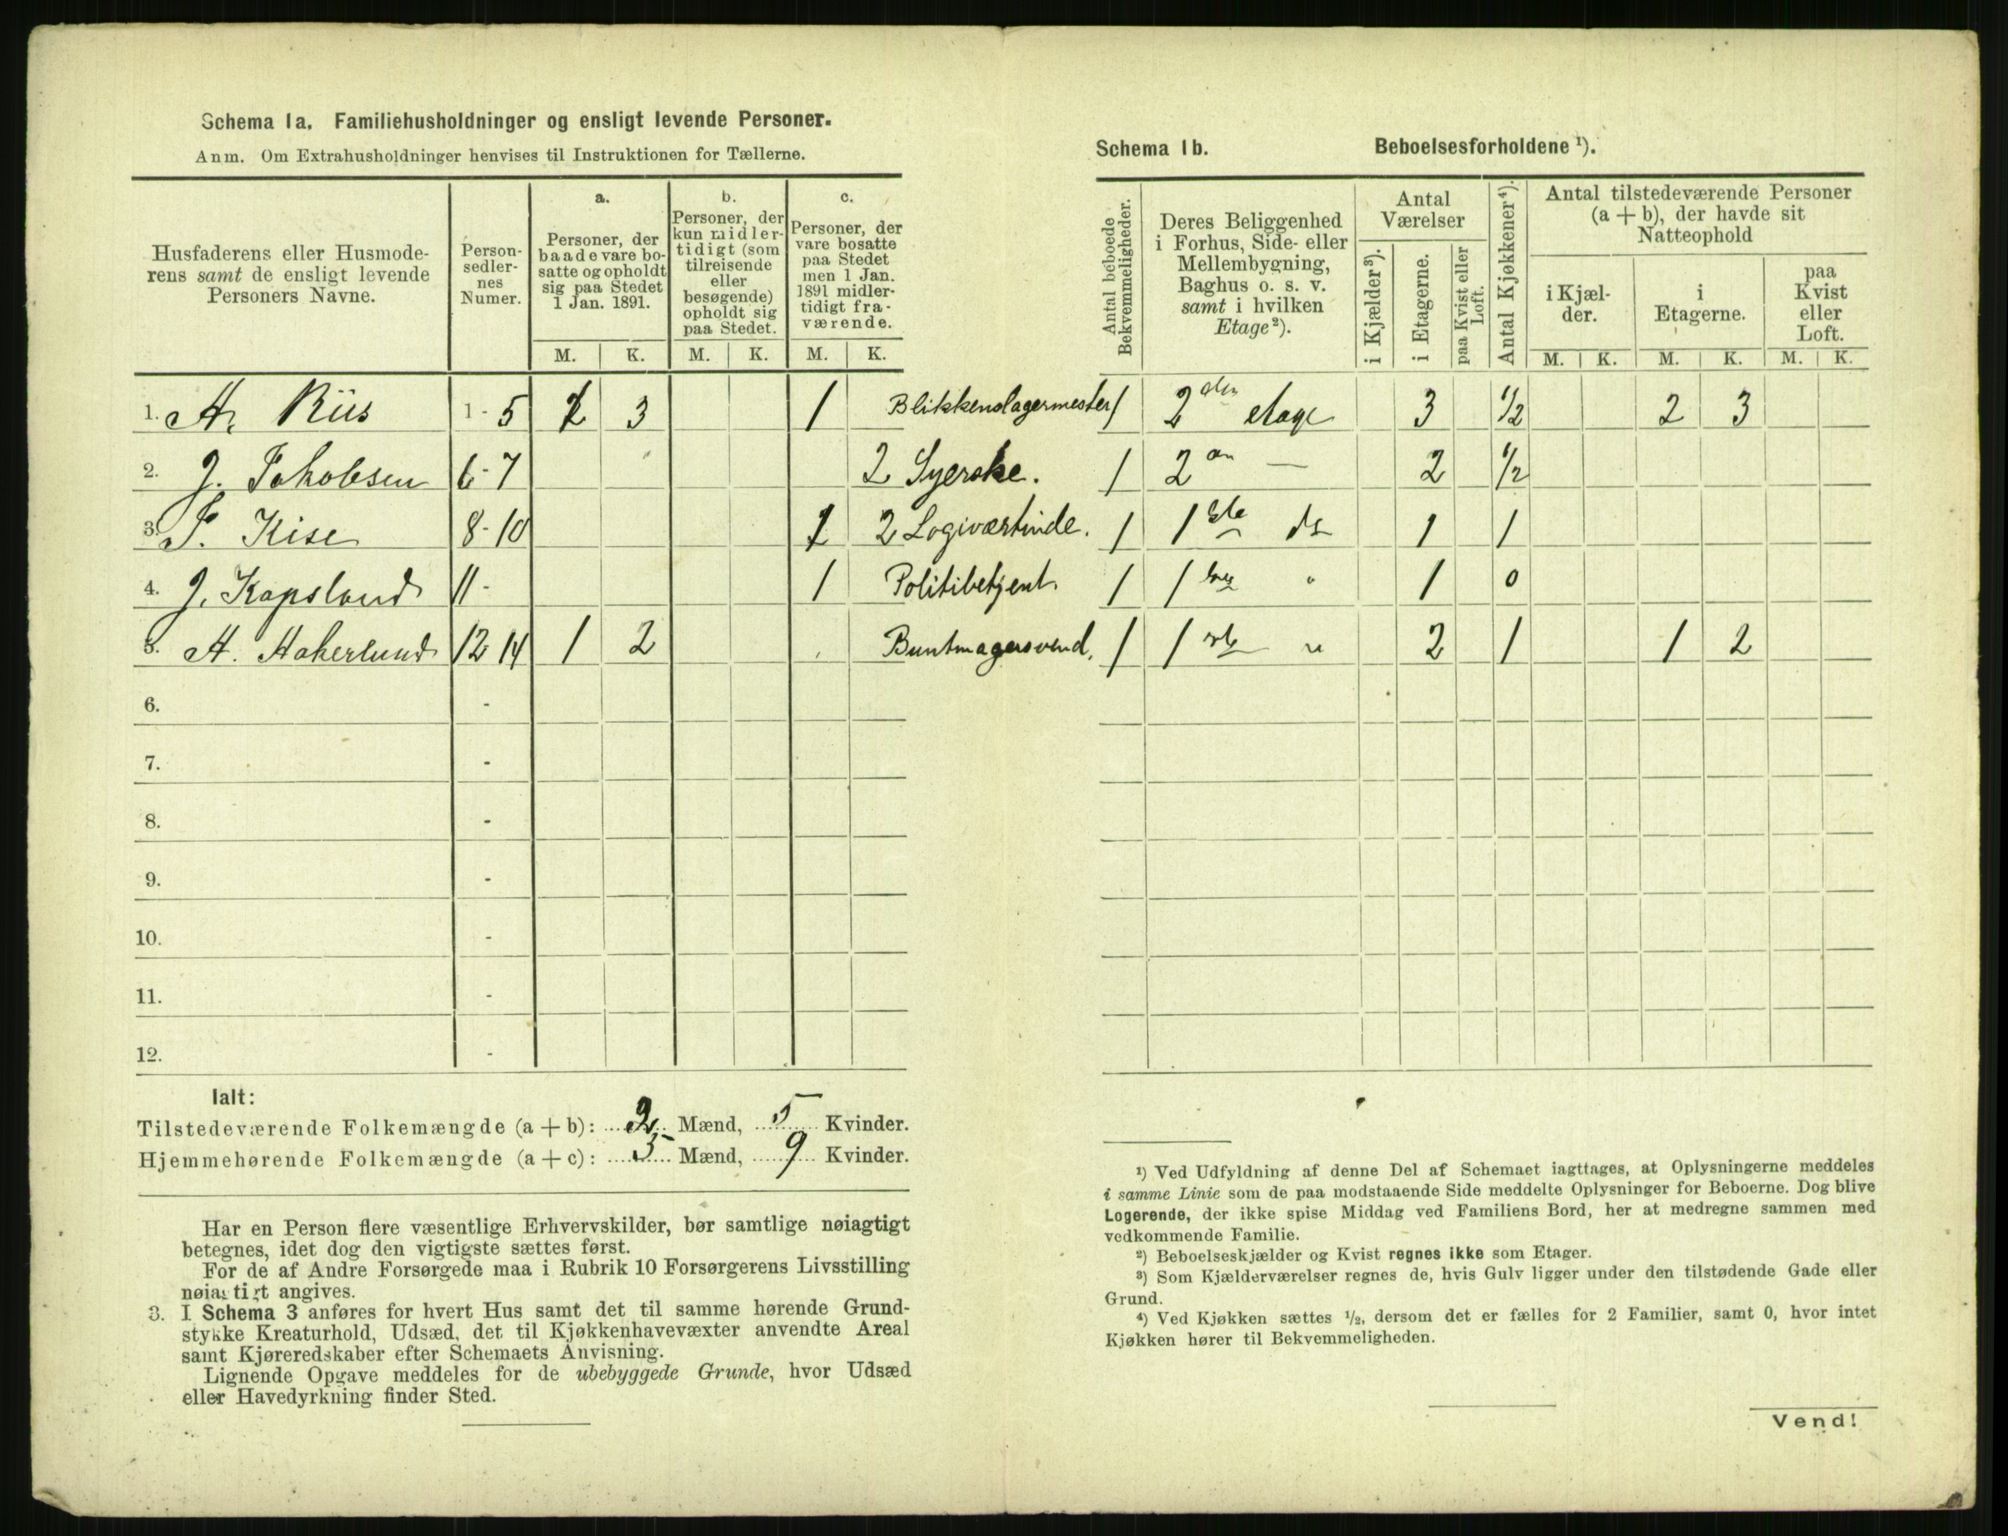 Schema 1a. Familiehusholdninger og ensligt levende Personer.
Anm. Om Extrahusholdninger henvises til Instruktionen for Tællerne.
Husfaderens eller Husmode-
rens samt de ensligt levende
Personers Navne.
Person-
sedler-
nes
Numer.
a.
Personer, der
baade vare bo-
satte og opholdt
sig paa Stedet
1 Jan. 1891.
b.
Personer, der
kun midler-
tidigt (som
tilreisende
eller
besøgende)
opholdt sig
paa Stedet.
c.
Personer, der
vare bosatte
paa Stedet
men 1 Jan.
1891 midler-
tidigt fra-
værende.
M. K. M. K. M. K.
1. A. Riis 1-5 2 3 1 Blikkenslagermester
2. J. Jakobsen 6-7 2 Syerske.
3. Kise 8-10 2 2 Logiværtinde.
4. J. Kopslund 11- 1 Politibetjent
5. A. Aakerlund 12-14 1 2 Buntmagersvend.
6. -
7. -
8. -
9. -
10. -
11. -
12. -
Ialt:
Tilstedeværende Folkemængde (a + b): 2 Mænd, 5 Kvinder.
Hjemmehørende Folkemængde (a + c): 5 Mænd, 9 Kvinder.
Har en Person flere væsentlige Erhvervskilder, bør samtlige nøiagtigt
betegnes, idet dog den vigtigste sættes først.
For de af Andre Forsørgede maa i Rubrik 10 Forsørgerens Livsstilling
nøiagtigt angives.
3. I Schema 3 anføres for hvert Hus samt det til samme hørende Grund-
stykke Kreaturhold, Udsæd, det til Kjøkkenhavevæxter anvendte Areal
samt Kjøreredskaber efter Schemaets Anvisning.
Lignende Opgave meddeles for de ubebyggede Grunde, hvor Udsæd
eller Havedyrkning finder Sted.
Schema 1b. Beboelsesforholdene ¹).
Antal beboede
Bekvemmeligheder.
Deres Beliggenhed
i Forhus, Side- eller
Mellembygning,
Baghus o. s. v.
samt i hvilken
Etage²).
Antal
Værelser
i Kjælder³).
i Etagerne.
paa Kvist eller
Loft.
Antal Kjøkkener⁴).
Antal tilstedeværende Personer
(a + b), der havde sit
Natteophold
i Kjæl-
der.
i
Etagerne.
paa
Kvist
eller
Loft.
M. K. M. K. M. K.
1 2den etage 3 1/2 2 3
1 2 — 2 1/2
1 1ste do 1 1
1 1 " 1 0
1 1ste " 2 1 1 2
¹) Ved Udfyldning af denne Del af Schemaet iagttages, at Oplysningerne meddeles
i samme Linie som de paa modstaaende Side meddelte Oplysninger for Beboerne. Dog blive
Logerende, der ikke spise Middag ved Familiens Bord, her at medregne sammen med
vedkommende Familie.
²) Beboelseskjælder og Kvist regnes ikke som Etager.
³) Som Kjælderværelser regnes de, hvis Gulv ligger under den tilstødende Gade eller
Grund.
⁴) Ved Kjøkken sættes ½, dersom det er fælles for 2 Familier, samt 0, hvor intet
Kjøkken hører til Bekvemmeligheden.
Vend!